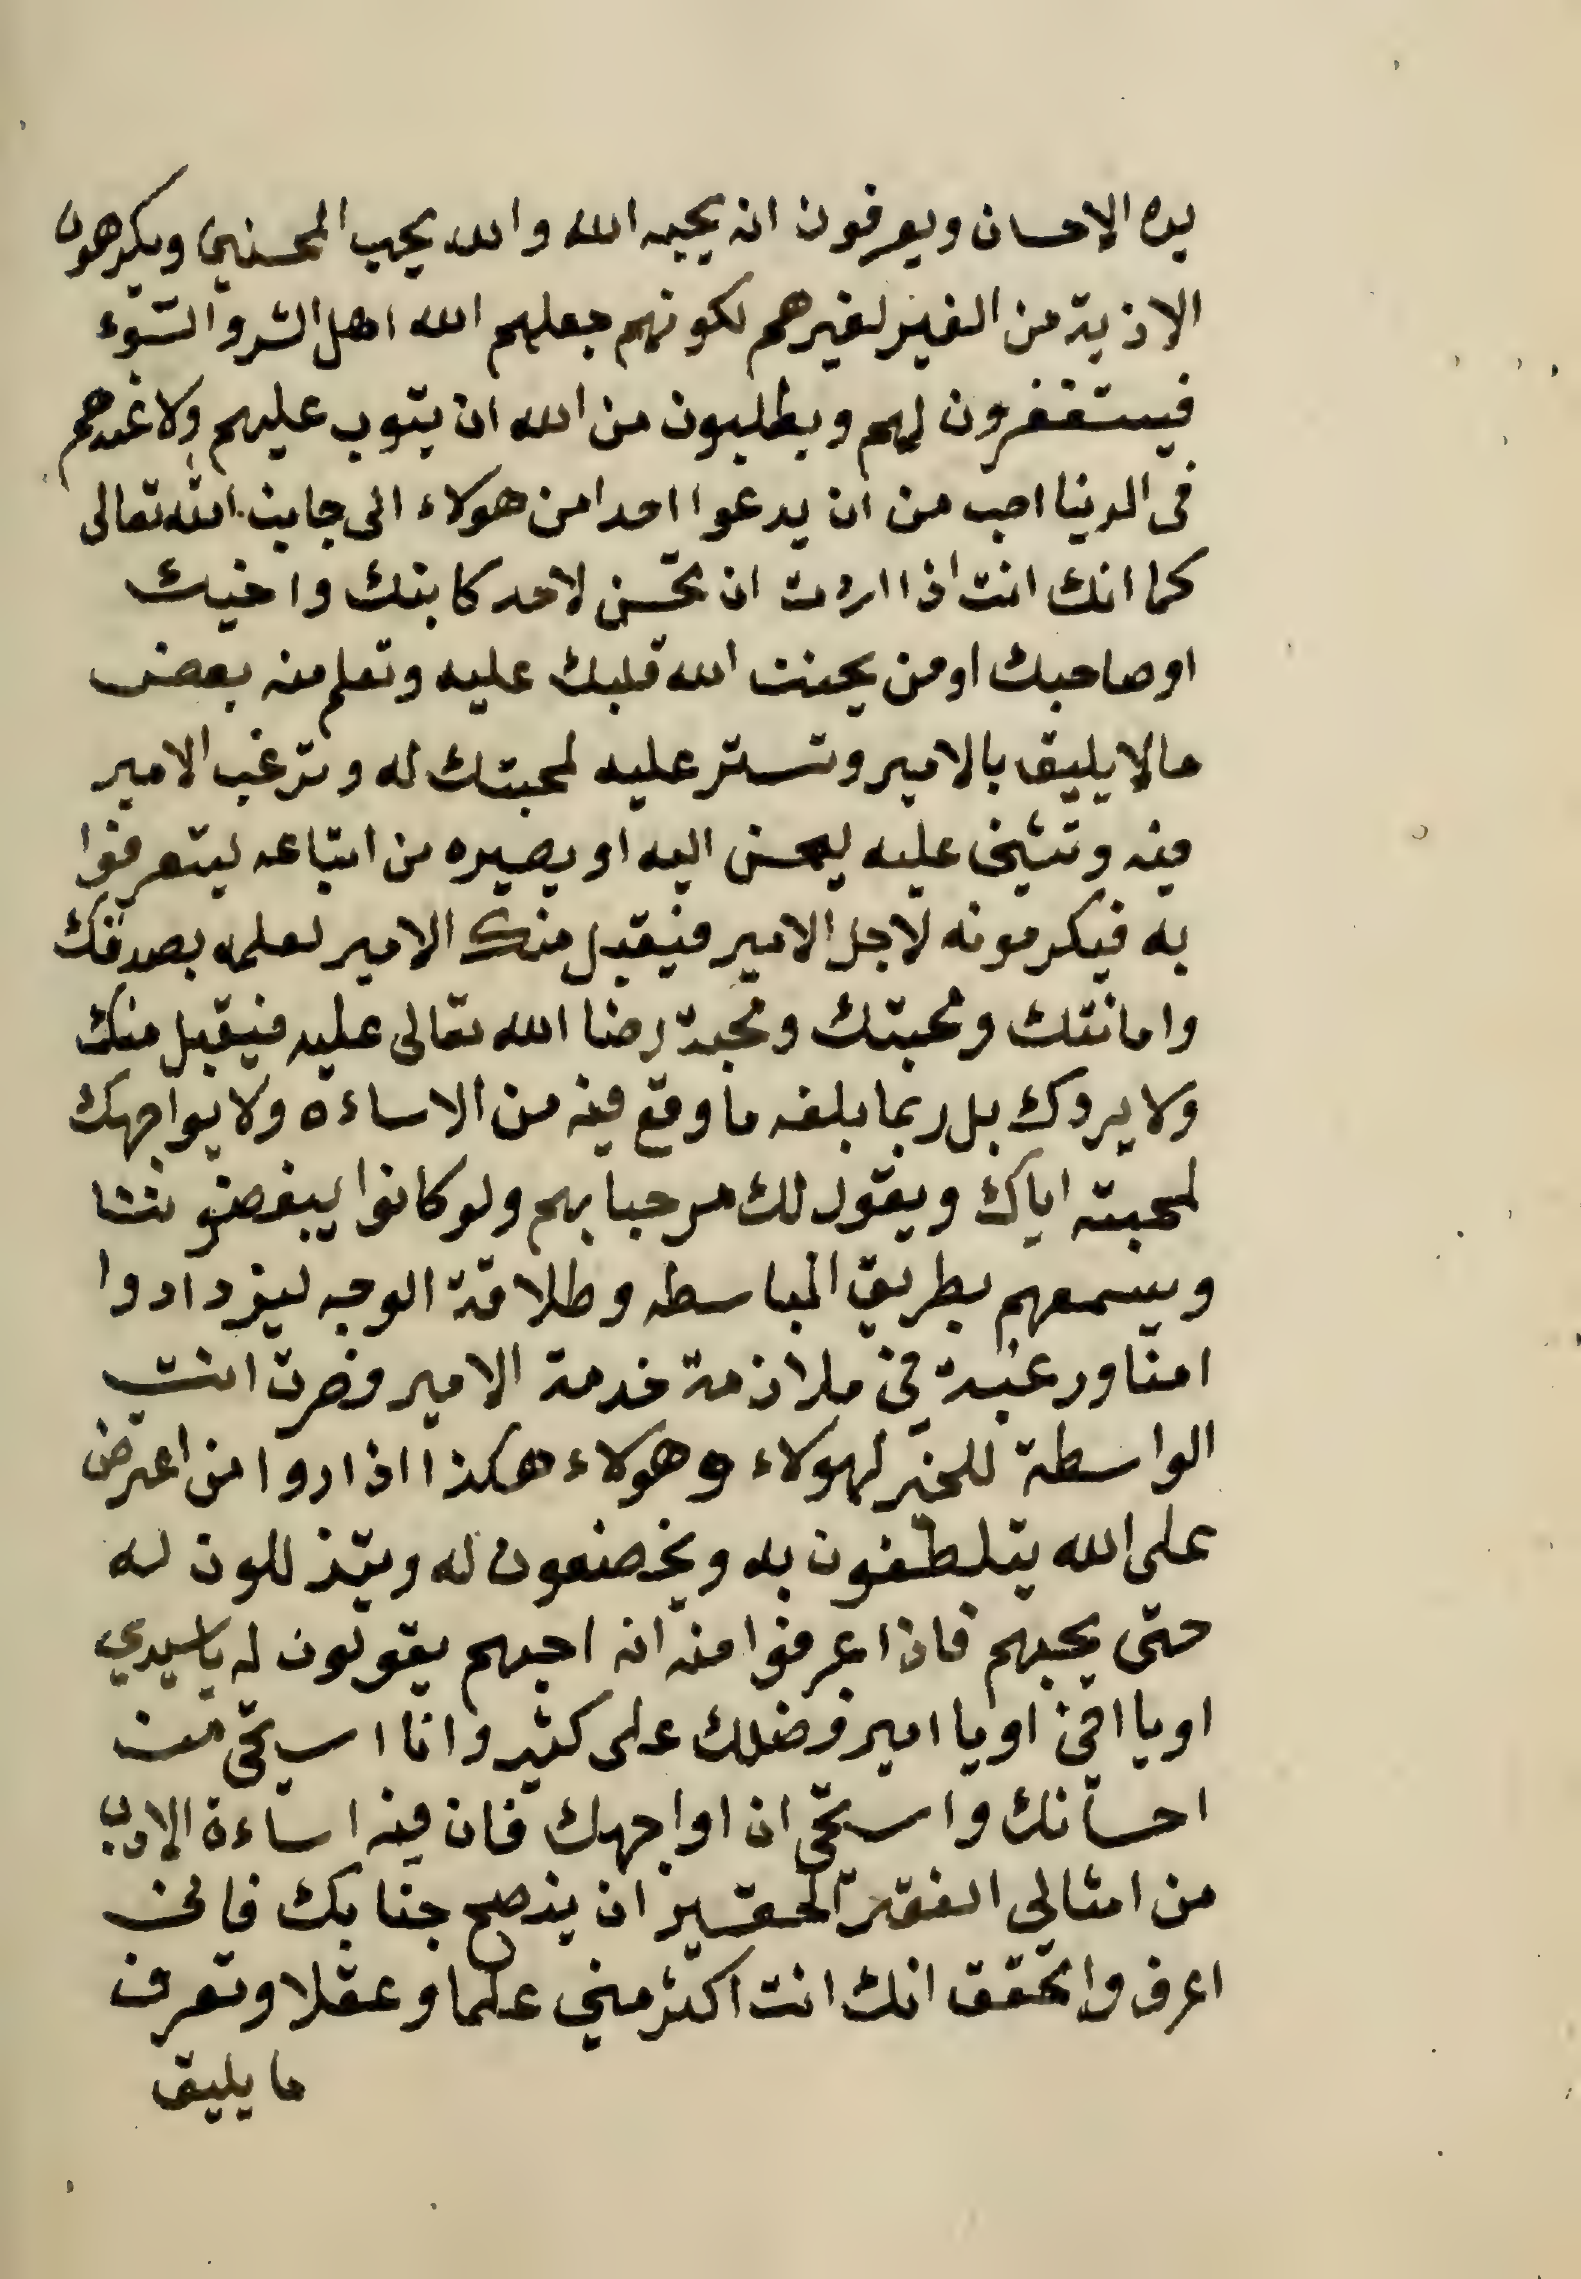 يده الاحسان ويعرفون انه يحبه الله والله يحب المحسنين ويكرهون
الاذية من الغير لغيرهم لكونهم جعلهم الله اهل الشر والسوء
فيستغفرون لهم ويطلبون من الله ان يتوب عليهم ولا عندهم
فى الدنيا احب من ان يدعوا احدا من هولاء الى جانب الله تعالى
كما انك انت اذا اردت ان تحسن لاحد كابنك واخيك
او صاحبك او من يحنن الله قلبك عليه وتعلم منه بعض
مالا يليق بالامير وتستر عليه لمحبتك له وترغب الامير
فيه وتثنى عليه ليحسن اليه او يصيره من اتباعه ليتعرفوا
به فيكرمونه لاجل الامير فيقبل منك الامير لعلمه بصدقك
وامانتك ومحبتك ومحبة رضا الله تعالى عليه فيقبل منك
ولا يردك بل ربما بلغه ما وقع فيه من الاساءه ولا يواجهك
لمحبته اياك ويقول لك مرحبا بهم ولو كانوا يبغضو
ويسمعهم بطريق المباسطه وطلاقة الوجه ليزدادوا
امنا ورغبة في ملازمة خدمة الامير وصرت انت
الواسطة للخير لهولاء وهولاء هكذا اذا روا من اعترض
على الله يتلطفون به ويخضعون له ويتذللون له
حتى يحبهم فاذا عرفوا منه انه احبهم يقولون له ياسيدي
او يا اخي او يا امير فضلك على كثير وانا استحى من
احسانك واستحى ان اواجهك فان فيه اساءة الادب
من امثالي الفقير الحقير ان ينصح جنابك فانى
اعرف واتحقق انك انت اكثر مني علما وعقلا وتعرف
ما يليق